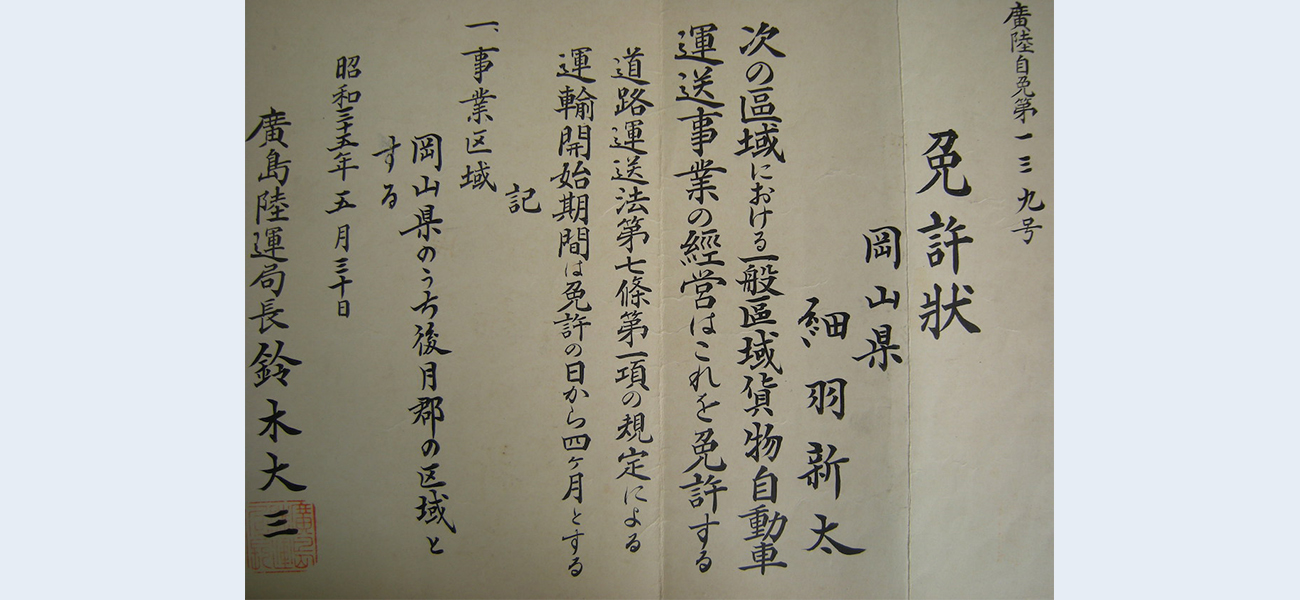 廣陸自免第一三九号
免許狀
岡山県
細羽新太
次の區域における一般區域貨物自動車
運送事業の經営はこれを免許する
道路運送法第七條第一項の規定による
運輸開始期間は免許の日から四ケ月とする
記
一、事業区域
岡山県のうち後月郡の区域と
する
昭和三十五年五月三十日
廣島陸運局長鈴木大三